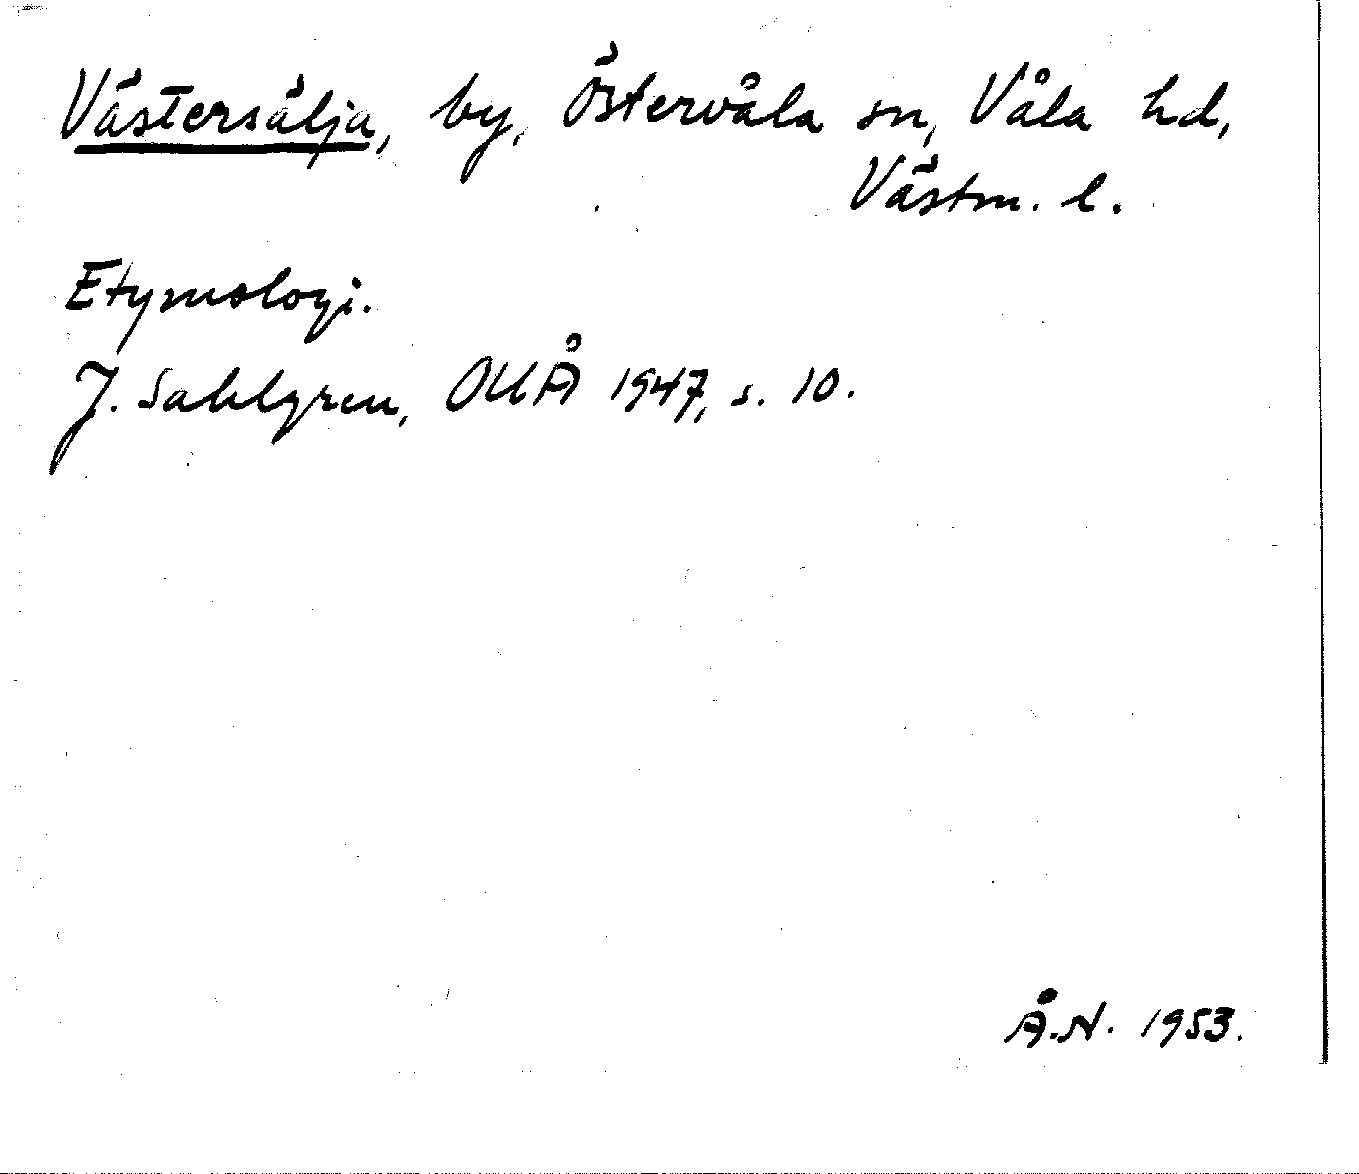 Västersälja, by, Östervåla sn, Våla hd,
Västm. l.
Etymologi.
J. Sahlgren, OUÅ 1947, s. 10.
Å.N. 1953.